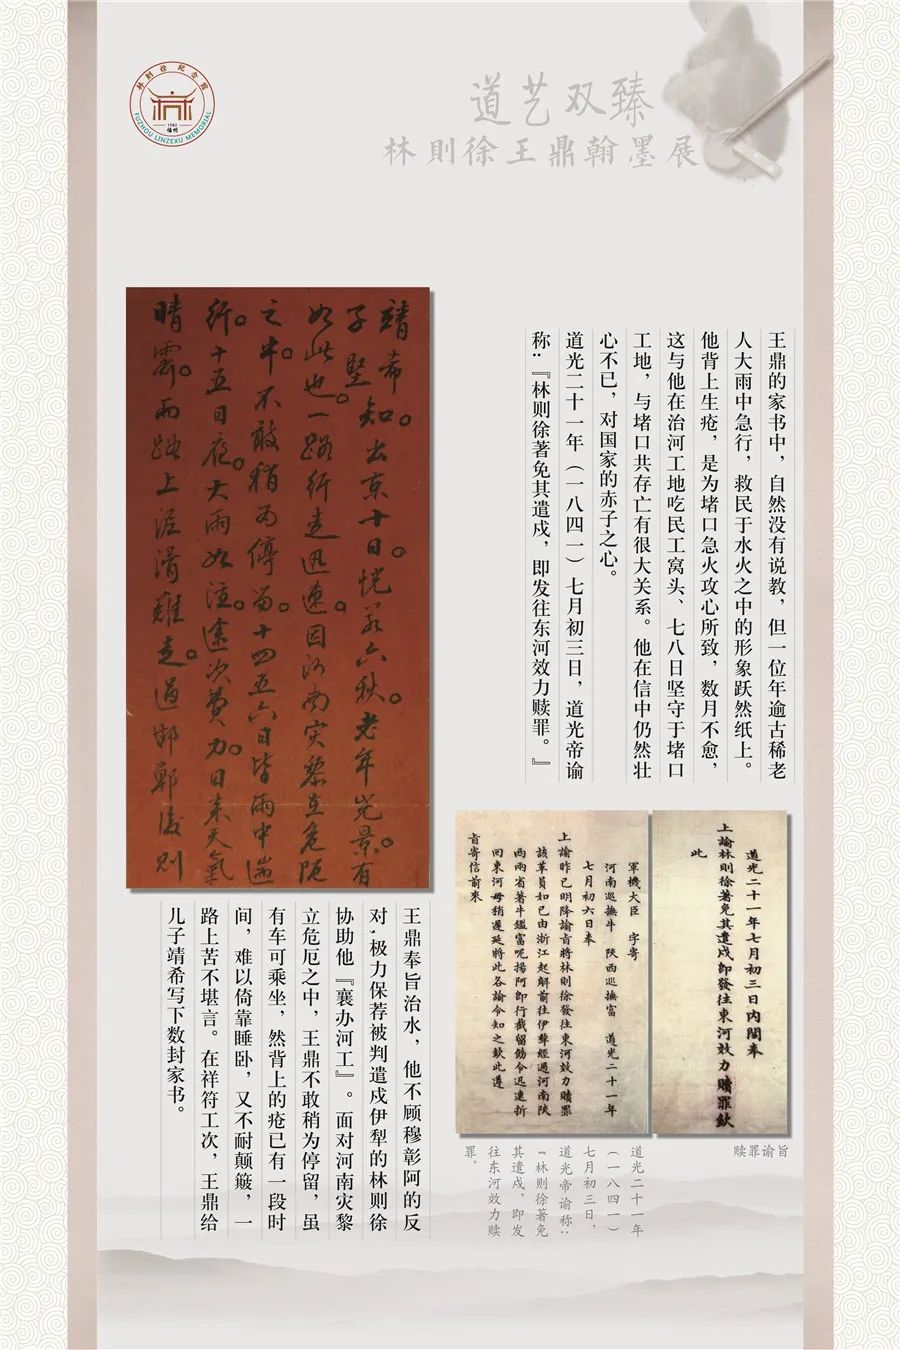 林则徐纪念馆
1982
福州
FUZHOU LINZEXU MEMORIAL
道艺双臻
林則徐王鼎翰墨展
王鼎的家书中，自然没有说教，但一位年逾古稀老
人大雨中急行，救民于水火之中的形象跃然纸上。
他背上生疮，是为堵口急火攻心所致，数月不愈，
这与他在治河工地吃民工窝头、七八日坚守于堵口
工地，与堵口共存亡有很大关系。他在信中仍然壮
心不已，对国家的赤子之心。
道光二十一年（一八四一）七月初三日，道光帝谕
称：『林则徐著免其遣戍，即发往东河效力赎罪。』
靖希知。出京十日。恍若六秋。老年光景。有
子堅
如此也。一路行走迅速。因河南灾黎在危阨
之中。不敢稍为停留。十四五六日皆雨中遄
行。十五日夜。大雨如注。途次费力。日来天氣
晴霽。而路上泥滑難走。過邯鄲後則
道光二十一年七月初三日内閣奉
上諭林則徐著免其遣戍即發往東河效力贖罪欽
此
軍機大臣 字寄
河南巡撫牛 陝西巡撫富 道光二十一年
七月初六日奉
上諭昨已明降諭旨將林則徐發往東河效力贖罪
該革員如已由浙江起解前往伊犂經過河南陝
西兩省著牛鑑富呢揚阿即行截留飭令迅速折
回東河毋稍遲延將此各諭令知之欽此遵
旨寄信前來
赎罪谕旨
道光二十一年
（一八四一）
七月初三日，
道光帝谕称：
『林则徐著免
其遣戍，即发
往东河效力赎
罪。
王鼎奉旨治水，他不顾穆彰阿的反
对，极力保荐被判遣戍伊犁的林则徐
协助他『襄办河工』。面对河南灾黎
立危厄之中，王鼎不敢稍为停留，虽
有车可乘坐，然背上的疮已有一段时
间，难以倚靠睡卧，又不耐颠簸，一
路上苦不堪言。在祥符工次，王鼎给
儿子靖希写下数封家书。